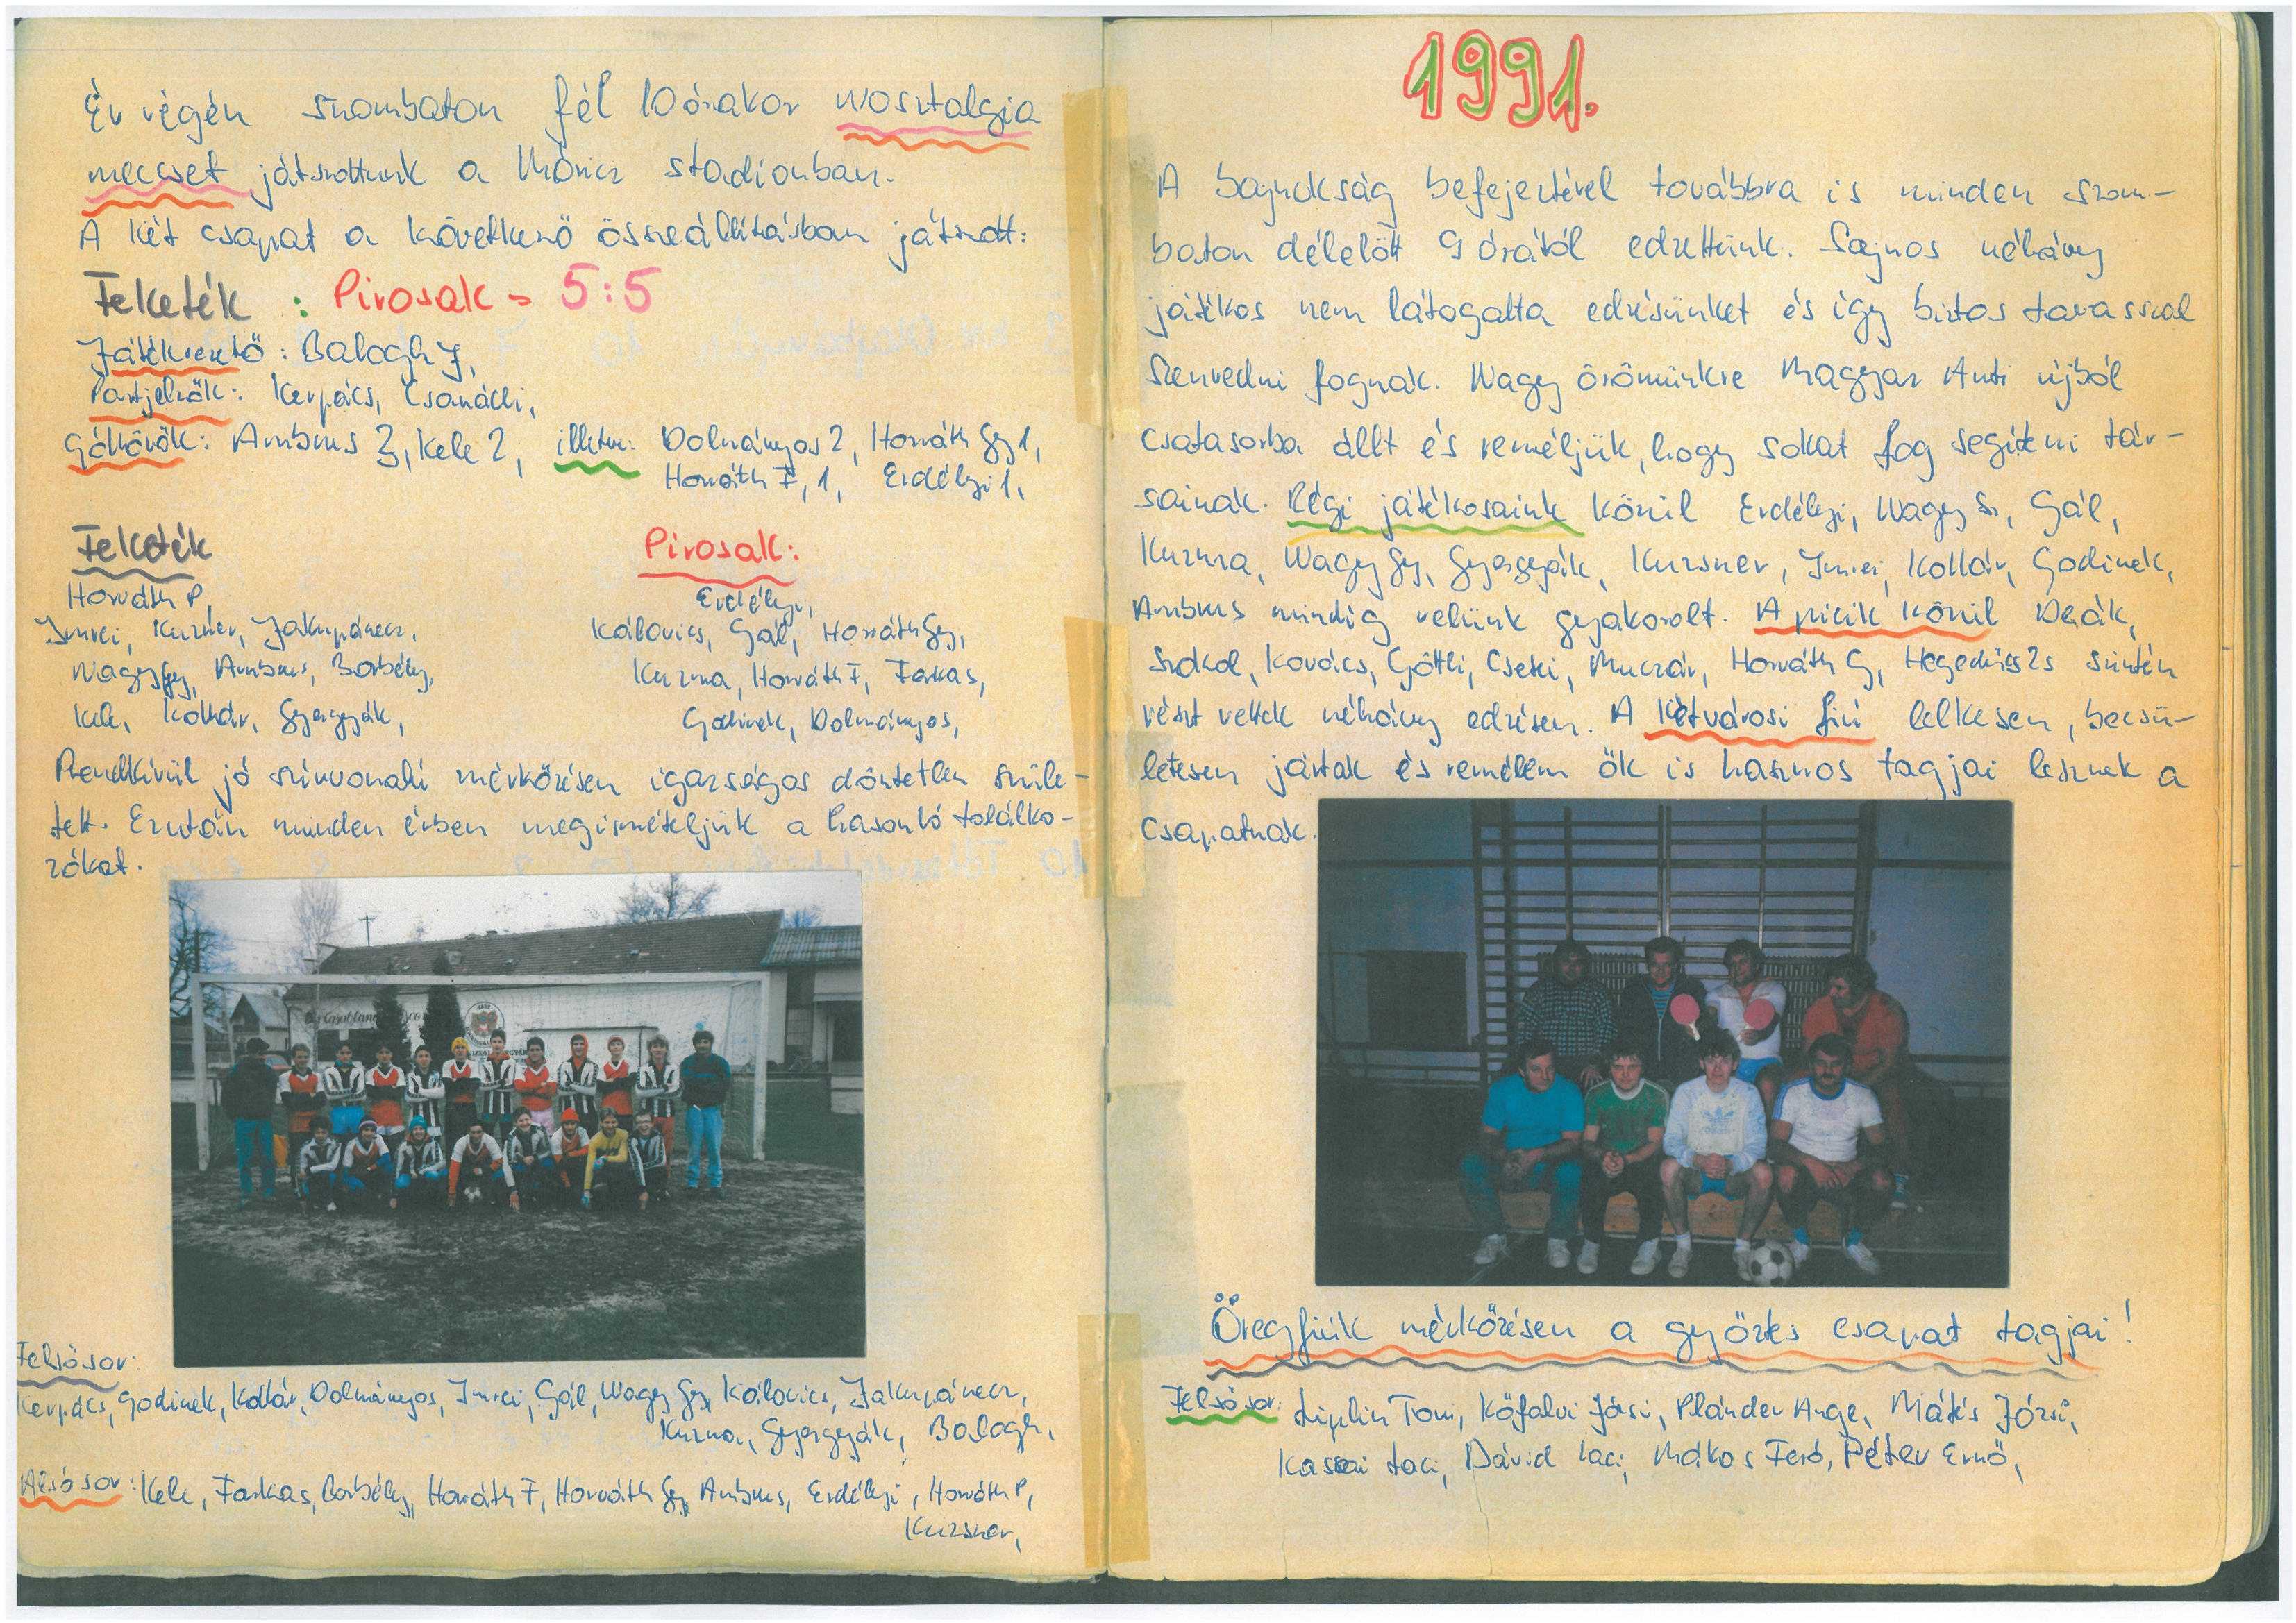 Év végén szombaton fél 10 órakor nosztalgia
meccset játszottunk a Móricz stadionban.
A két csapat a következő összeállításban játszott:
Feketék : Pirosak = 5:5
Játékvezető: Balogh J,
Partjelzők: Kerpács, Csanádi,
Góllövők: Ambrus 3, Kele 2, illetve: Dolmányos 2, Horváth Gy 1,
Horváth F, 1, Erdélyi 1,
Feketék
Horváth P,
Imrei, Kurzner, Jakupánecz,
Nagy Gy, Ambrus, Borbély,
Kele, Kollár, Gyergyák,
Pirosak:
Erdélyi,
Kálovics, Gál, Horváth Gy,
Kuzma, Horváth F, Farkas,
Godinek, Dolmányos,
Rendkívül jó színvonalú mérkőzésen igazságos döntetlen szüle-
tett. Ezután minden évben megismételjük a hasonló találko-
zókat.
Casablanca
Felsősor:
Kerpács, Godinek, Kollár, Dolmányos, Imrei, Gál, Nagy Gy, Kálovics, Jakupánecz,
Kuzma, Gyergyák, Balogh,
Alsósor: Kele, Farkas, Borbély, Horváth F, Horváth Gy, Ambrus, Erdélyi, Horváth P,
Kurzsner,
1991.
A bajnokság befejeztével továbbra is minden szom-
baton délelőtt 9 órától edzettünk. Sajnos néhány
játékos nem látogatta edzésünket és így biztos tavasszal
szenvedni fognak. Nagy örömünkre Magyar Anti újból
csatasorba állt és reméljük, hogy sokat fog segíteni tár-
sainak. Régi játékosaink közül Erdélyi, Nagy Sz, Gál,
Kuzma, Nagy Gy, Gyergyák, Kurzsner, Imrei, Kollár, Godinek,
Ambrus mindig velünk gyakorolt. A picik közül Deák,
Szokol, Kovács, Göttli, Cseki, Muczár, Horváth G, Hegedűs Zs szintén
részt vettek néhány edzésen. A két városi fiú lelkesen, becsü-
letesen jártak és remélem ők is hasznos tagjai lesznek a
csapatnak.
Öregfiúk mérkőzésen a győztes csapat tagjai!
Felsősor: Liplin Tomi, Kőfalvi Józsi, Plánder Ange, Mátés Józsi,
Kassai Laci, Dávid Laci, Mákos Feró, Péter Ernő,